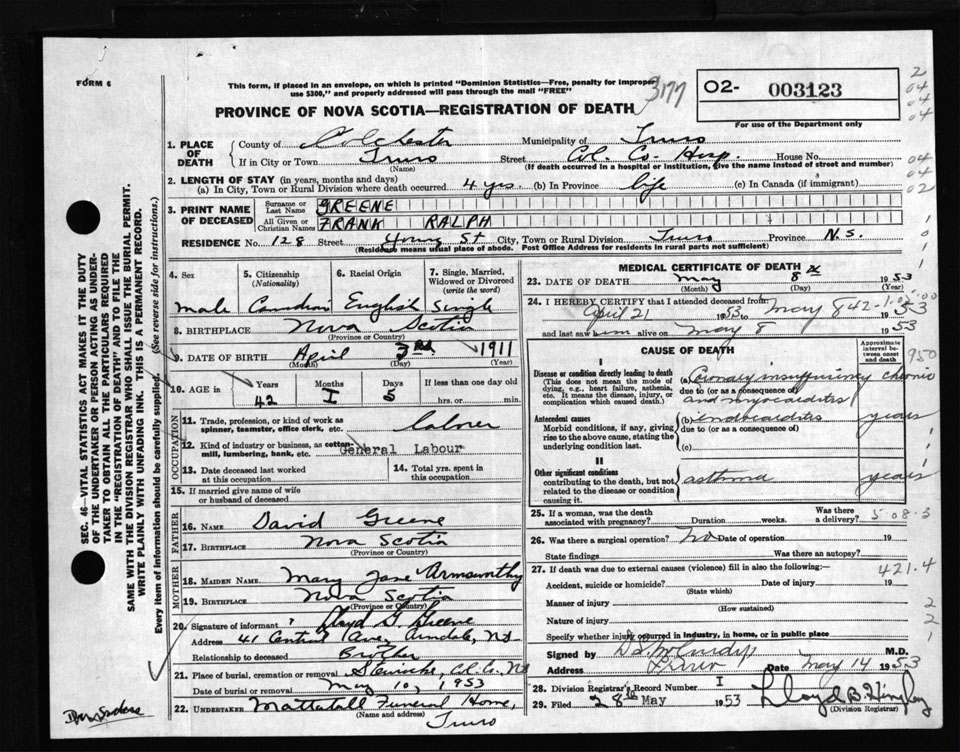 FORM 6
This form, if placed in an envelope, on which is printed "Dominion Statistics—Free, penalty for improper
use $300," and properly addressed will pass through the mail "FREE"
3177
O2- 003123
PROVINCE OF NOVA SCOTIA—REGISTRATION OF DEATH
For use of the Department only
1. PLACE OF DEATH
County of Colchester Municipality of Truro
If in City or Town Truro Street Col. Co. Hosp. House No.
(Name) (If death occurred in a hospital or institution, give the name instead of street and number)
2. LENGTH OF STAY (in years, months and days)
(a) In City, Town or Rural Division where death occurred 4 yrs. (b) In Province life (c) In Canada (if immigrant)
3. PRINT NAME OF DECEASED
Surname or Last Name GREENE
All Given or Christian Names FRANK RALPH
RESIDENCE No. 128 Street Young St City, Town or Rural Division Truro Province N.S.
(Residence means usual place of abode. Post Office Address for residents in rural parts not sufficient)
4. Sex
male
5. Citizenship (Nationality)
Canadian
6. Racial Origin
English
7. Single, Married, Widowed or Divorced (write the word)
Single
8. BIRTHPLACE Nova Scotia
(Province or Country)
9. DATE OF BIRTH April 3rd 1911
(Month) (Day) (Year)
10. AGE in Years Months Days If less than one day old
42 I 5 hrs. or min.
OCCUPATION
11. Trade, profession, or kind of work as
spinner, teamster, office clerk, etc. laborer
12. Kind of industry or business, as cotton-
mill, lumbering, bank, etc. General Labour
13. Date deceased last worked
at this occupation
14. Total yrs. spent in
this occupation
15. If married give name of wife
or husband of deceased
FATHER
16. NAME David Greene
17. BIRTHPLACE Nova Scotia
(Province or Country)
MOTHER
18. MAIDEN NAME Mary Jane Armsworthy
19. BIRTHPLACE Nova Scotia
(Province or Country)
20. Signature of informant Lloyd G. Greene
Address 41 Central Ave., Armdale, NS
Relationship to deceased Brother
21. Place of burial, cremation or removal Col. Co. NS
Date of burial or removal May 10, 1953
22. UNDERTAKER Mattatall Funeral Home,
(Name and address) Truro
MEDICAL CERTIFICATE OF DEATH
23. DATE OF DEATH May 8 1953
(Month) (Day) (Year)
24. I HEREBY CERTIFY that I attended deceased from:
April 21 1953 to May 8 1953
and last saw him alive on May 8 1953
CAUSE OF DEATH
Approximate interval between onset and death
I
Disease or condition directly leading to death
(This does not mean the mode of
dying, e.g., heart failure, asthenia,
etc. It means the disease, injury, or
complication which caused death.)
(a) Coronary insufficiency chronic
due to (or as a consequence of)
and myocarditis
Antecedent causes
Morbid conditions, if any, giving
rise to the above cause, stating the
underlying condition last.
(b) endocarditis years
due to (or as a consequence of)
(c)
II
Other significant conditions
contributing to the death, but not
related to the disease or condition
causing it.
asthma years
25. If a woman, was the death
associated with pregnancy? Duration weeks. Was there a delivery?
5-08-3
26. Was there a surgical operation? No Date of operation 19
State findings Was there an autopsy?
27. If death was due to external causes (violence) fill in also the following:—
421.4
Accident, suicide or homicide? Date of injury 19
(State which)
Manner of injury
(How sustained)
Nature of injury
Specify whether injury occurred in industry, in home, or in public place
Signed by M.D.
Address Truro Date May 14 1953
28. Division Registrar's Record Number I
29. Filed 28th May 1953 Lloyd B.
(Division Registrar)
SEC. 46—VITAL STATISTICS ACT MAKES IT THE DUTY
OF THE UNDERTAKER OR PERSON ACTING AS UNDER-
TAKER TO OBTAIN ALL THE PARTICULARS REQUIRED
IN THE "REGISTRATION OF DEATH" AND TO FILE THE
SAME WITH THE DIVISION REGISTRAR WHO SHALL ISSUE THE BURIAL PERMIT.
WRITE PLAINLY WITH UNFADING INK. THIS IS A PERMANENT RECORD.
Every item of information should be carefully supplied. (See reverse side for instructions.)
2
04
04
04
04
04
02
950
2
2
1